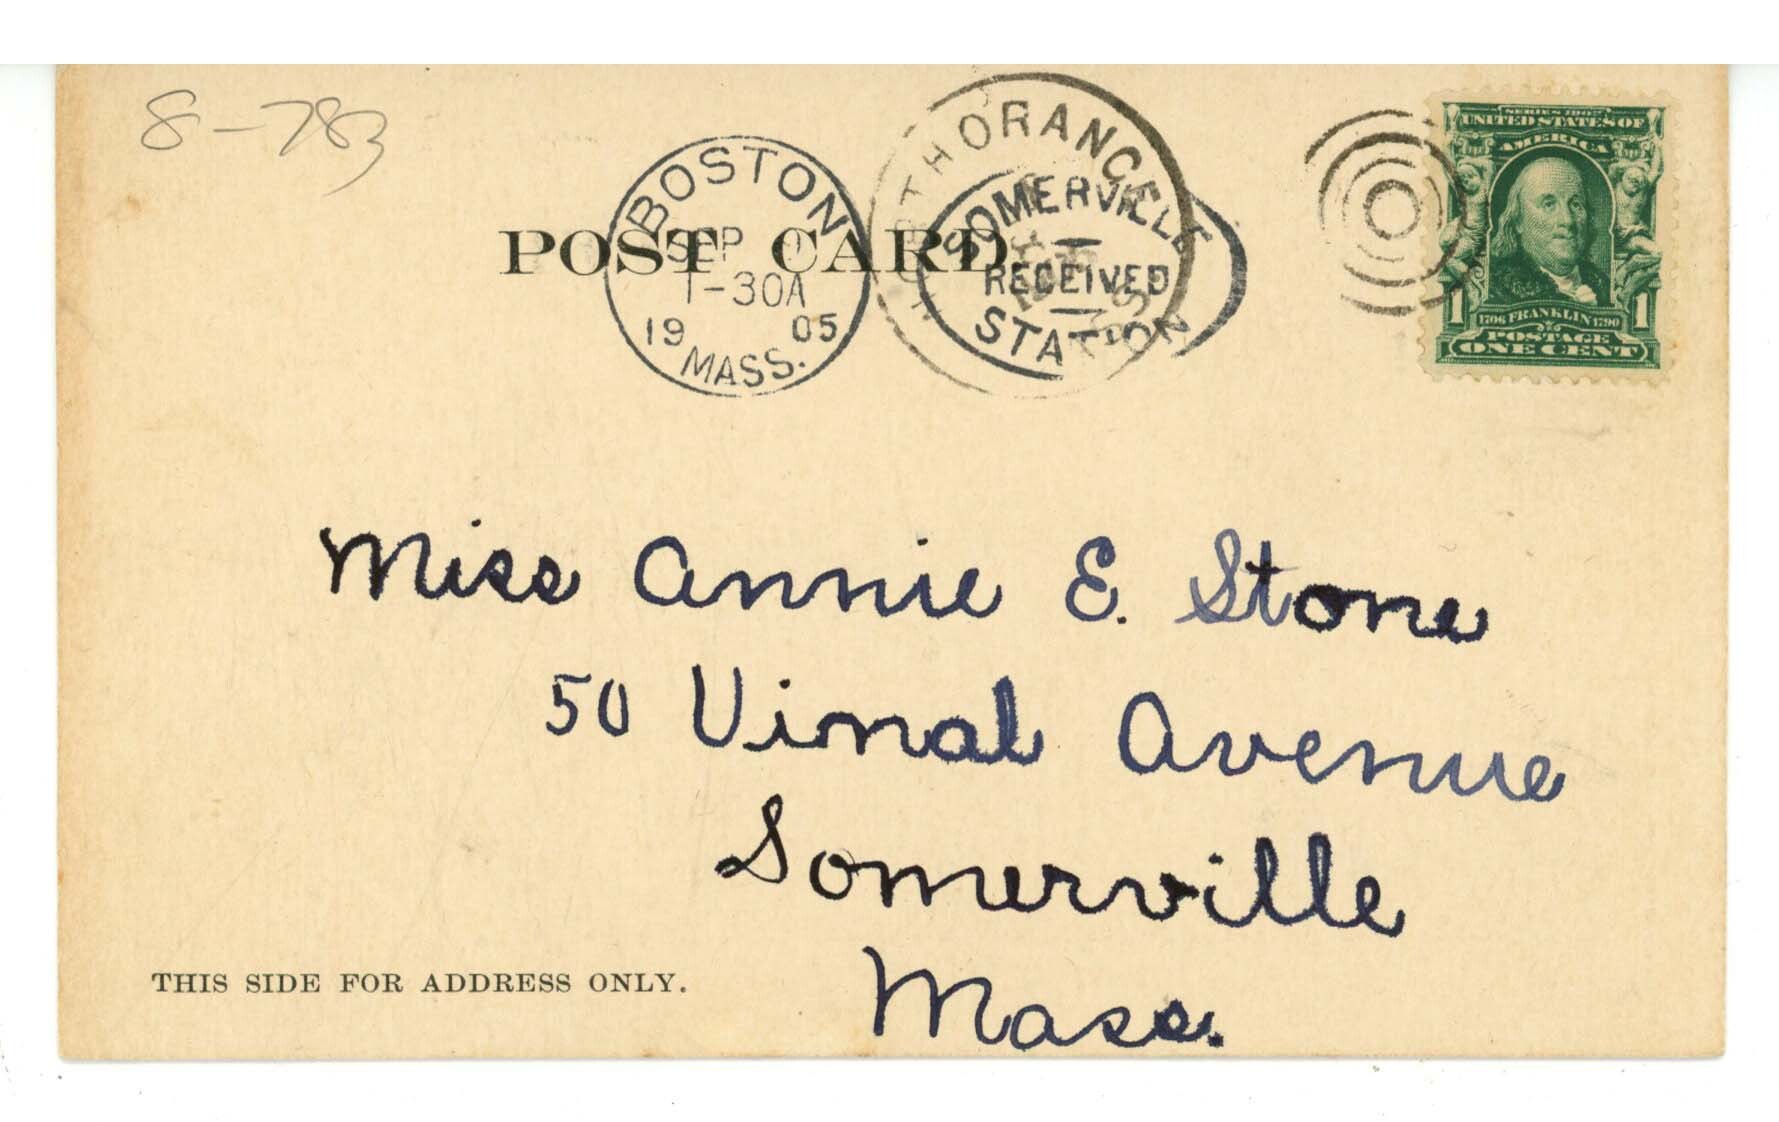 8-783
BOSTON
SEP
1-30A
19 05
MASS.
NORTH ORANGE
SOMERVILLE
RECEIVED
STATION
SERIES 1902
UNITED STATES OF
AMERICA
1 1
1706 FRANKLIN 1790
POSTAGE
ONE CENT
POST CARD
Miss Annie E. Stone
50 Vinal Avenue
Somerville
Mass.
THIS SIDE FOR ADDRESS ONLY.